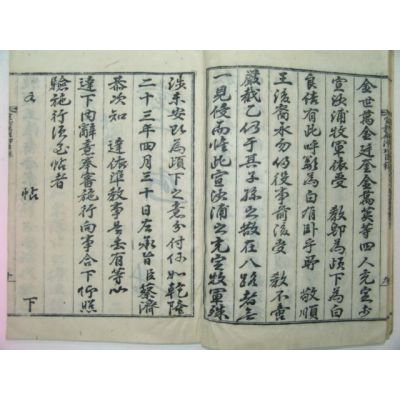 金世萬金廷全金萬英等四人充定於
宣洑浦牧軍依受 教卽爲頉下爲白
良結有此呼籲爲白有卧乎 敬順
王後裔永勿役事前後受 教不啻
嚴截乙仍于其子孫之散在八路者無
一見侵而惟此宣洑浦之充定牧軍殊
涉未安取爲頉下之意分付何如乾隆
二十三年四月三十日右承旨臣蔡濟
恭次知 達依準教事是去有等以
達下內辭意奉審施行向事合下仰照
驗施行須至帖者
又 帖
下